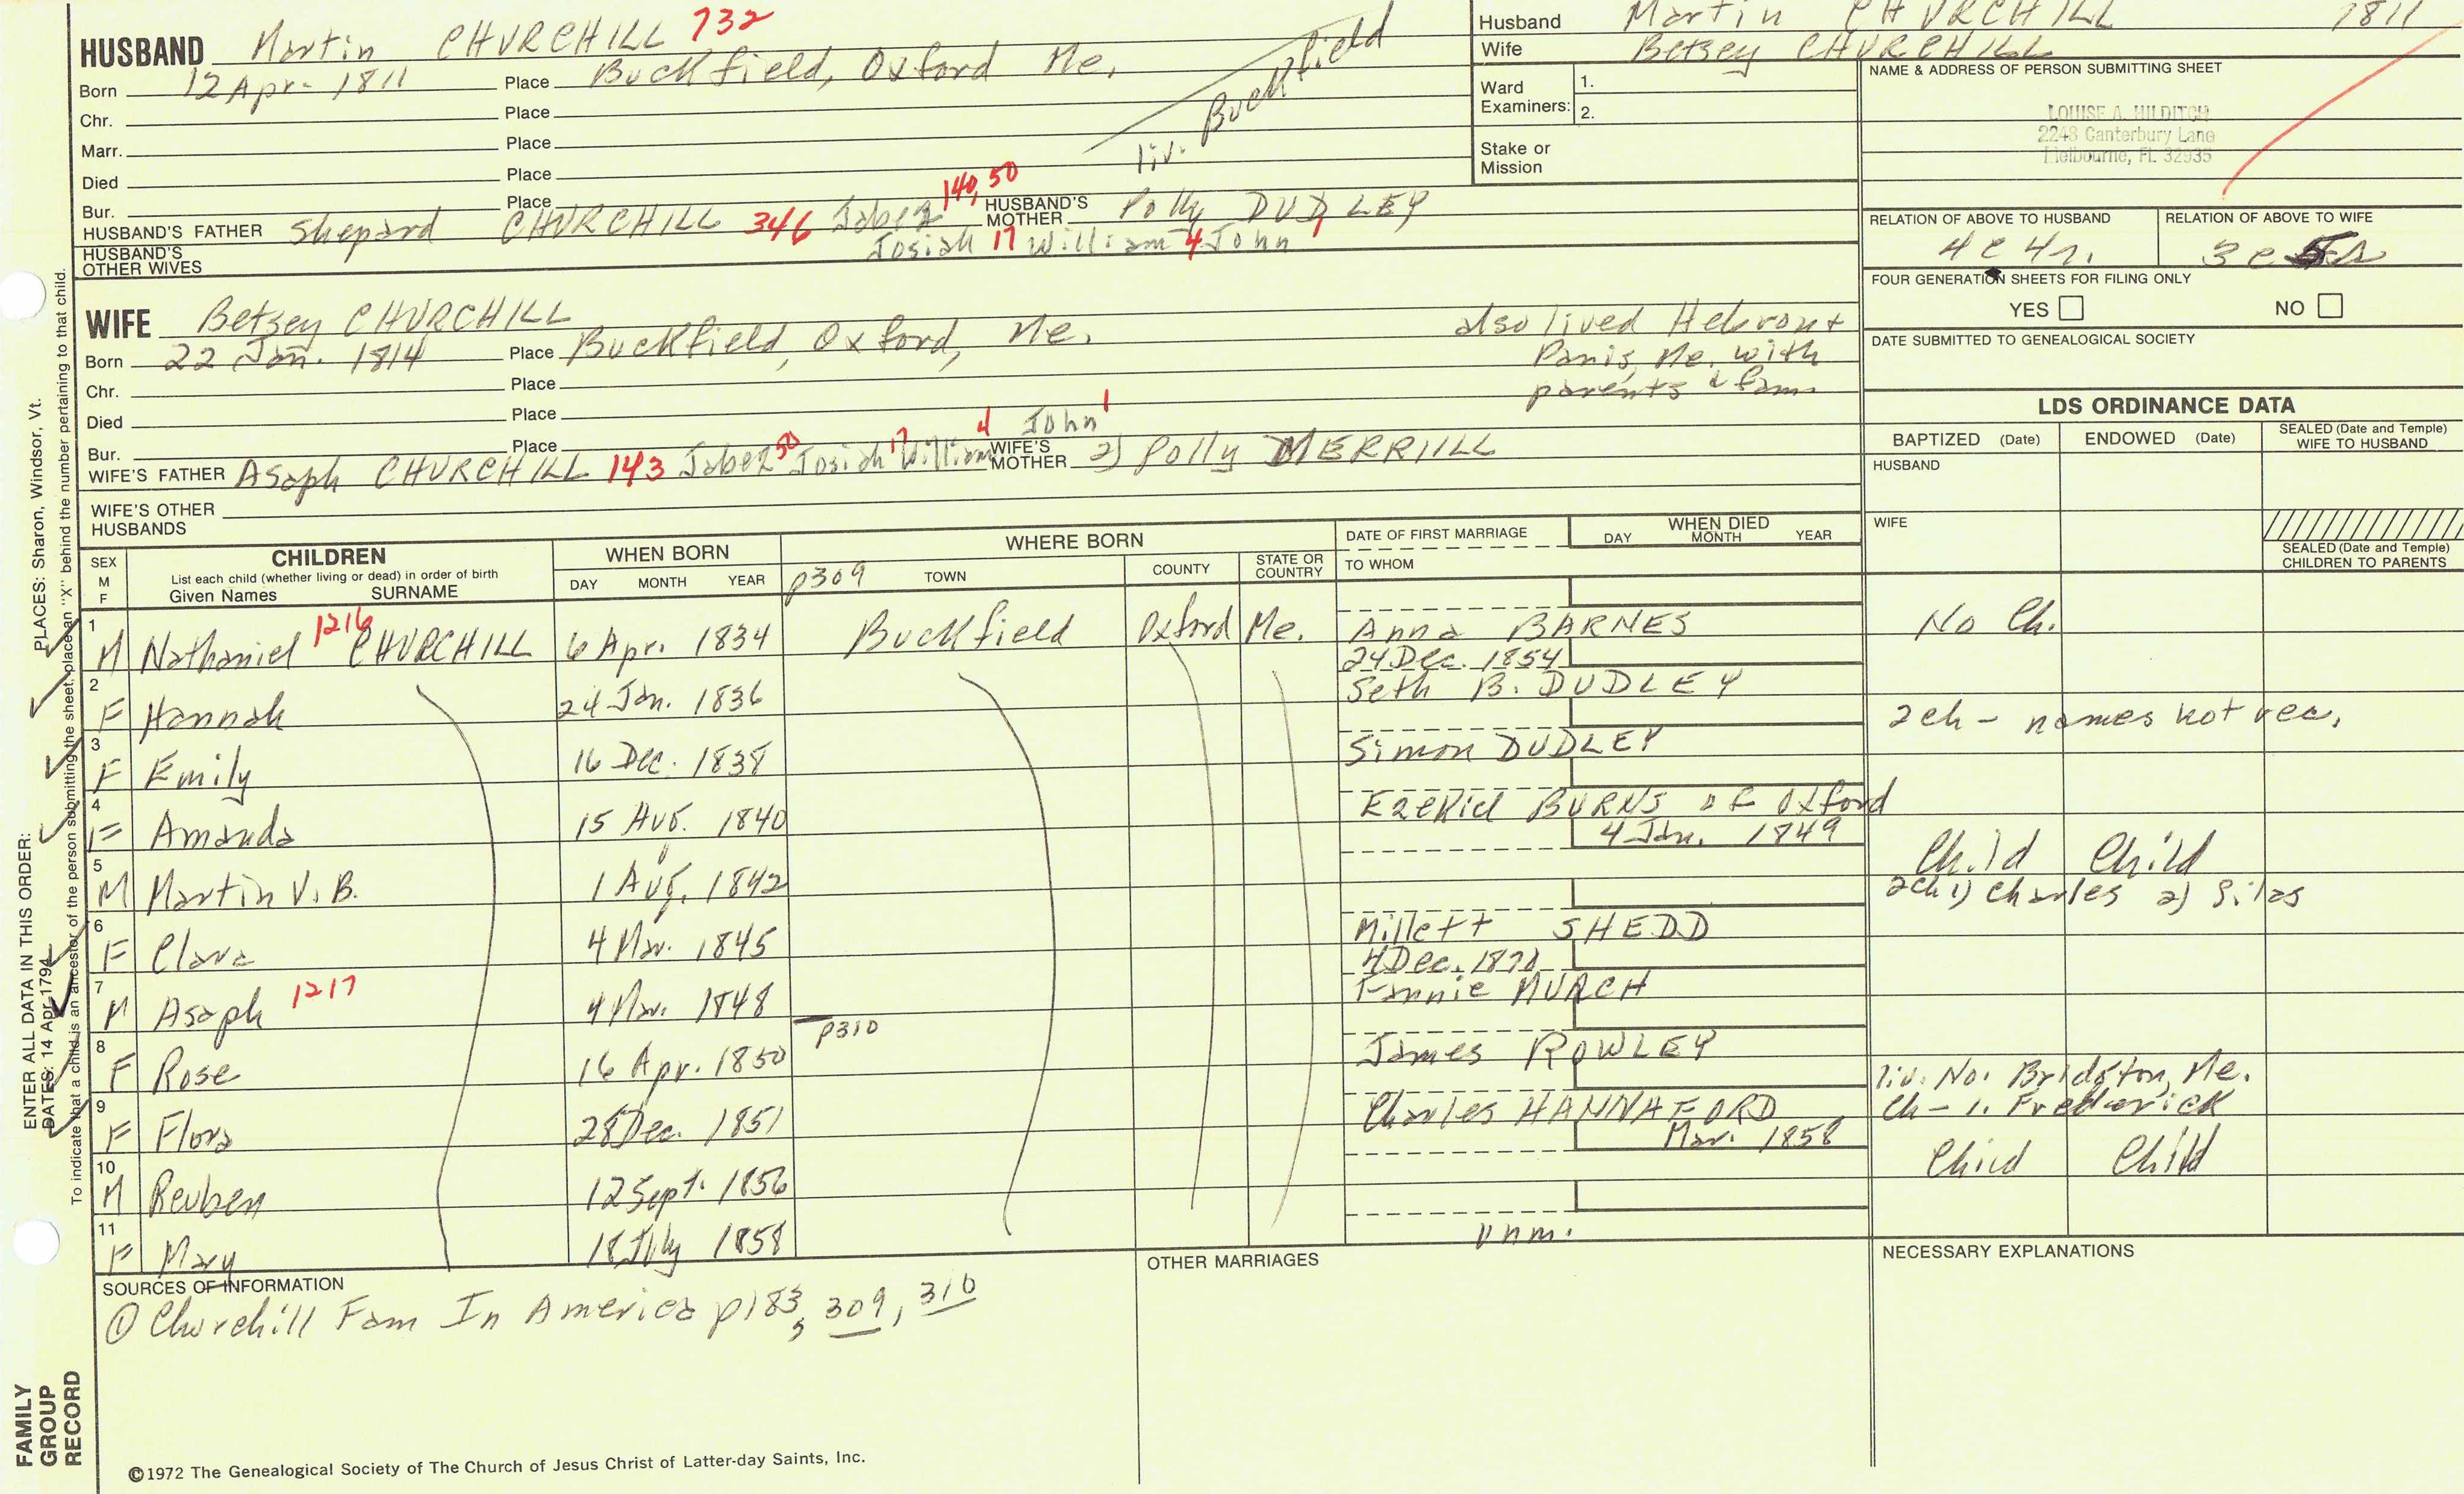 HUSBAND Martin CHURCHILL 732
Born 12 Apr- 1811 Place Buckfield, Oxford Me.
Chr. Place
Marr. Place
Died Place
Bur. Place
liv. Buckfield
HUSBAND'S FATHER Shepard CHURCHILL 346 Jabez 140, 50 HUSBAND'S MOTHER Polly DUDLEY
Josiah 17 William 4 John 1
HUSBAND'S OTHER WIVES
Husband Martin CHURCHILL 1811
Wife Betsey CHURCHILL
Ward Examiners: 1.
2.
Stake or Mission
NAME & ADDRESS OF PERSON SUBMITTING SHEET
LOUISE A. HILDITCH
2248 Canterbury Lane
Melbourne, FL 32935
RELATION OF ABOVE TO HUSBAND
4c4r.
RELATION OF ABOVE TO WIFE
FOUR GENERATION SHEETS FOR FILING ONLY
YES NO
DATE SUBMITTED TO GENEALOGICAL SOCIETY
WIFE Betsey CHURCHILL
Born 22 Jan. 1814 Place Buckfield, Oxford, Me.
Chr. Place
Died Place
Bur. Place
also lived Hebron +
Paris, Me. with
parents & fam.
WIFE'S FATHER Asaph CHURCHILL 143 Jabez 50 Josiah 17 William 4 John 1 WIFE'S MOTHER 2) Polly MERRIILL
WIFE'S OTHER HUSBANDS
LDS ORDINANCE DATA
BAPTIZED (Date) ENDOWED (Date) SEALED (Date and Temple) WIFE TO HUSBAND
HUSBAND
WIFE
SEALED (Date and Temple) CHILDREN TO PARENTS
SEX M F CHILDREN List each child (whether living or dead) in order of birth Given Names SURNAME
WHEN BORN DAY MONTH YEAR
WHERE BORN p309 TOWN COUNTY STATE OR COUNTRY
DATE OF FIRST MARRIAGE TO WHOM
WHEN DIED DAY MONTH YEAR
1 M Nathaniel 1216 CHURCHILL 6 Apr. 1834 Buckfield Oxford Me. Anna BARNES No Ch.
24 Dec. 1854
2 F Hannah 24 Jan. 1836 Seth B. DUDLEY 2ch - names not rec.
3 F Emily 16 Dec. 1838 Simon DUDLEY
4 F Amanda 15 Aug. 1840 Ezekiel BURNS of Oxford
4 Jan. 1849
5 M Martin V. B. 1 Aug. 1842 Child Child
2ch 1) Charles 2) Silas
6 F Clara 4 Mar. 1845 Millett SHEDD
4 Dec. 1870
7 M Asaph 1217 4 Mar. 1848 Fannie MURCH
p310
8 F Rose 16 Apr. 1850 James ROWLEY
liv. No. Bridgton, Me.
9 F Flora 28 Dec. 1851 Charles HANNAFORD Ch - 1. Frederick
Mar. 1858
10 M Reuben 12 Sept. 1856 Child Child
11 F Mary 18 July 1858 unm.
SOURCES OF INFORMATION
① Churchill Fam In America p183, 309, 310
OTHER MARRIAGES
NECESSARY EXPLANATIONS
©1972 The Genealogical Society of The Church of Jesus Christ of Latter-day Saints, Inc.
FAMILY GROUP RECORD
ENTER ALL DATA IN THIS ORDER:
DATES: 14 Apr 1794
PLACES: Sharon, Windsor, Vt.
To indicate that a child is an ancestor of the person submitting the sheet, place an "X" behind the number pertaining to that child.